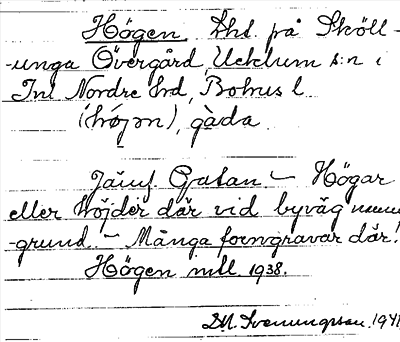 Högen. Lhd. på Sköll-
-unga Övergård, Ucklum s:n i
Inl Nordre hd, Bohus l.
(hǿjǝn), gàda.
Jämf. Gatan – Högar
eller höjder där vid byväg
-grund. – Många forngravar där!
Högen nill. 1938.
D.M. Svenungsson. 1941